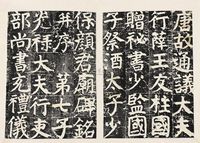 唐故通議大夫
行薛王友柱國
贈秘書少監國
子祭酒太子少
保顏君廟碑銘
并序　第七子
光祿大夫行吏
部尚書充禮儀